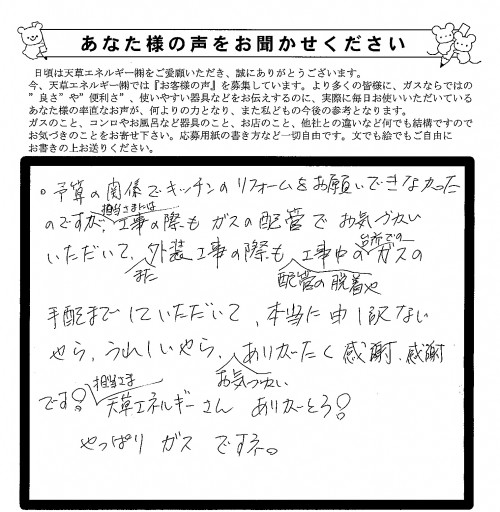 あなた様の声をお聞かせください
日頃は天草エネルギー㈱をご愛顧いただき、誠にありがとうございます。
今、天草エネルギー㈱では『お客様の声』を募集しています。より多くの皆様に、ガスならではの
"良さ"や"便利さ"、使いやすい器具などをお伝えするのに、実際に毎日お使いいただいている
あなた様の率直なお声が、何よりの力となり、また私どもの今後の参考となります。
ガスのこと、コンロやお風呂など器具のこと、お店のこと、他社との違いなど何でも結構ですので
お気づきのことをお寄せ下さい。応募用紙の書き方など一切自由です。文でも絵でもご自由に
お書きの上お送りください。
。予算の関係でキッチンのリフォームをお願いできなかった
担当さまには
のですが、工事の際も ガスの配管で お気づかい
台所での
いただいて、外装工事の際も 工事中の ガスの
また
配管の脱着や
手配までしていただいて、本当に申し訳ない
やら、うれしいやら、ありがたく感謝、感謝
お気づかい
担当さま
です! 天草エネルギーさん ありがとう!
やっぱり ガス ですネ。